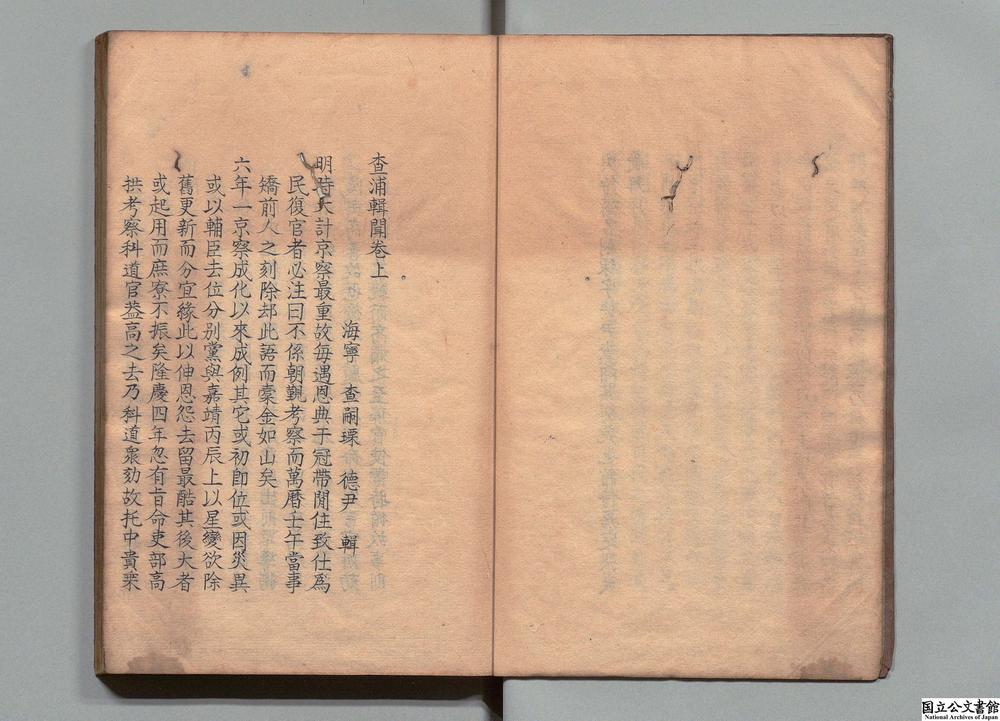 查浦輯聞卷上
海寧 查嗣瑮 德尹 輯
明時大計京察最重故每遇恩典于冠帶閒住致仕爲
民復官者必注曰不係朝觀考察而萬曆壬午當事
矯前人之刻除却此語而橐金如山矣
六年一京察成化以來成例其它或初卽位或因災異
或以輔臣去位分別黨與嘉靖丙辰上以星變欲除
舊更新而分宜緣此以伸恩怨去留最酷其後大者
或起用而庶寮不振矣隆慶四年忽有旨命吏部高
拱考察科道官葢高之去乃科道衆劾故托中貴票
国立公文書館
National Archives of Japan